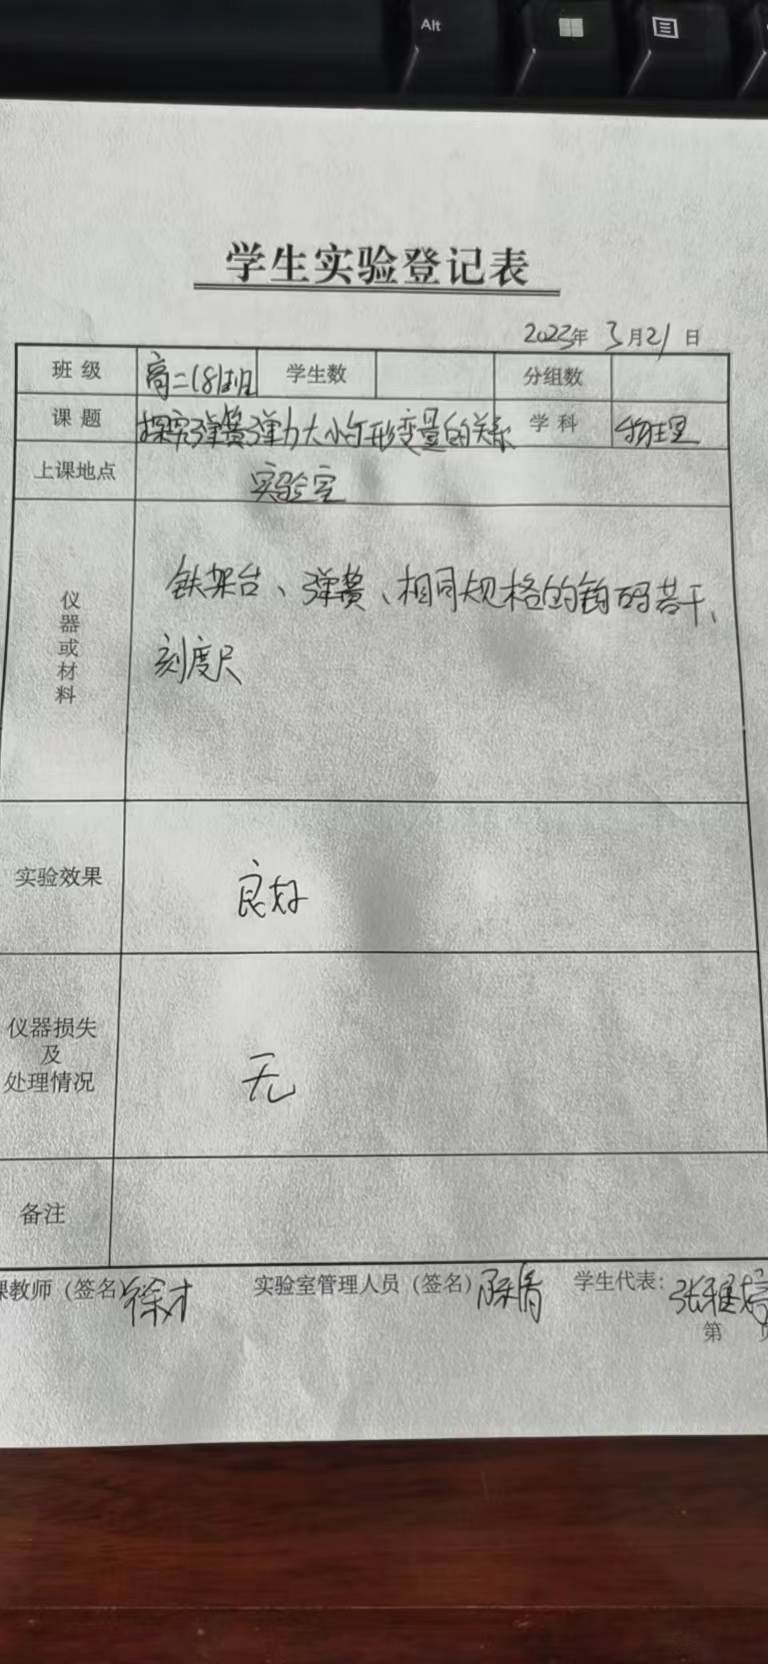 Alt
学生实验登记表
2023年 3月21日
班级 高二(8)班 学生数 分组数
课题 探究弹簧弹力大小与形变量的关系 学科 物理
上课地点 实验室
仪器或材料 铁架台、弹簧、相同规格的钩码若干、
刻度尺
实验效果 良好
仪器损失
及
处理情况
无
备注
课教师（签名） 徐才 实验室管理人员（签名） 陈倩 学生代表：张雅婷
第 页